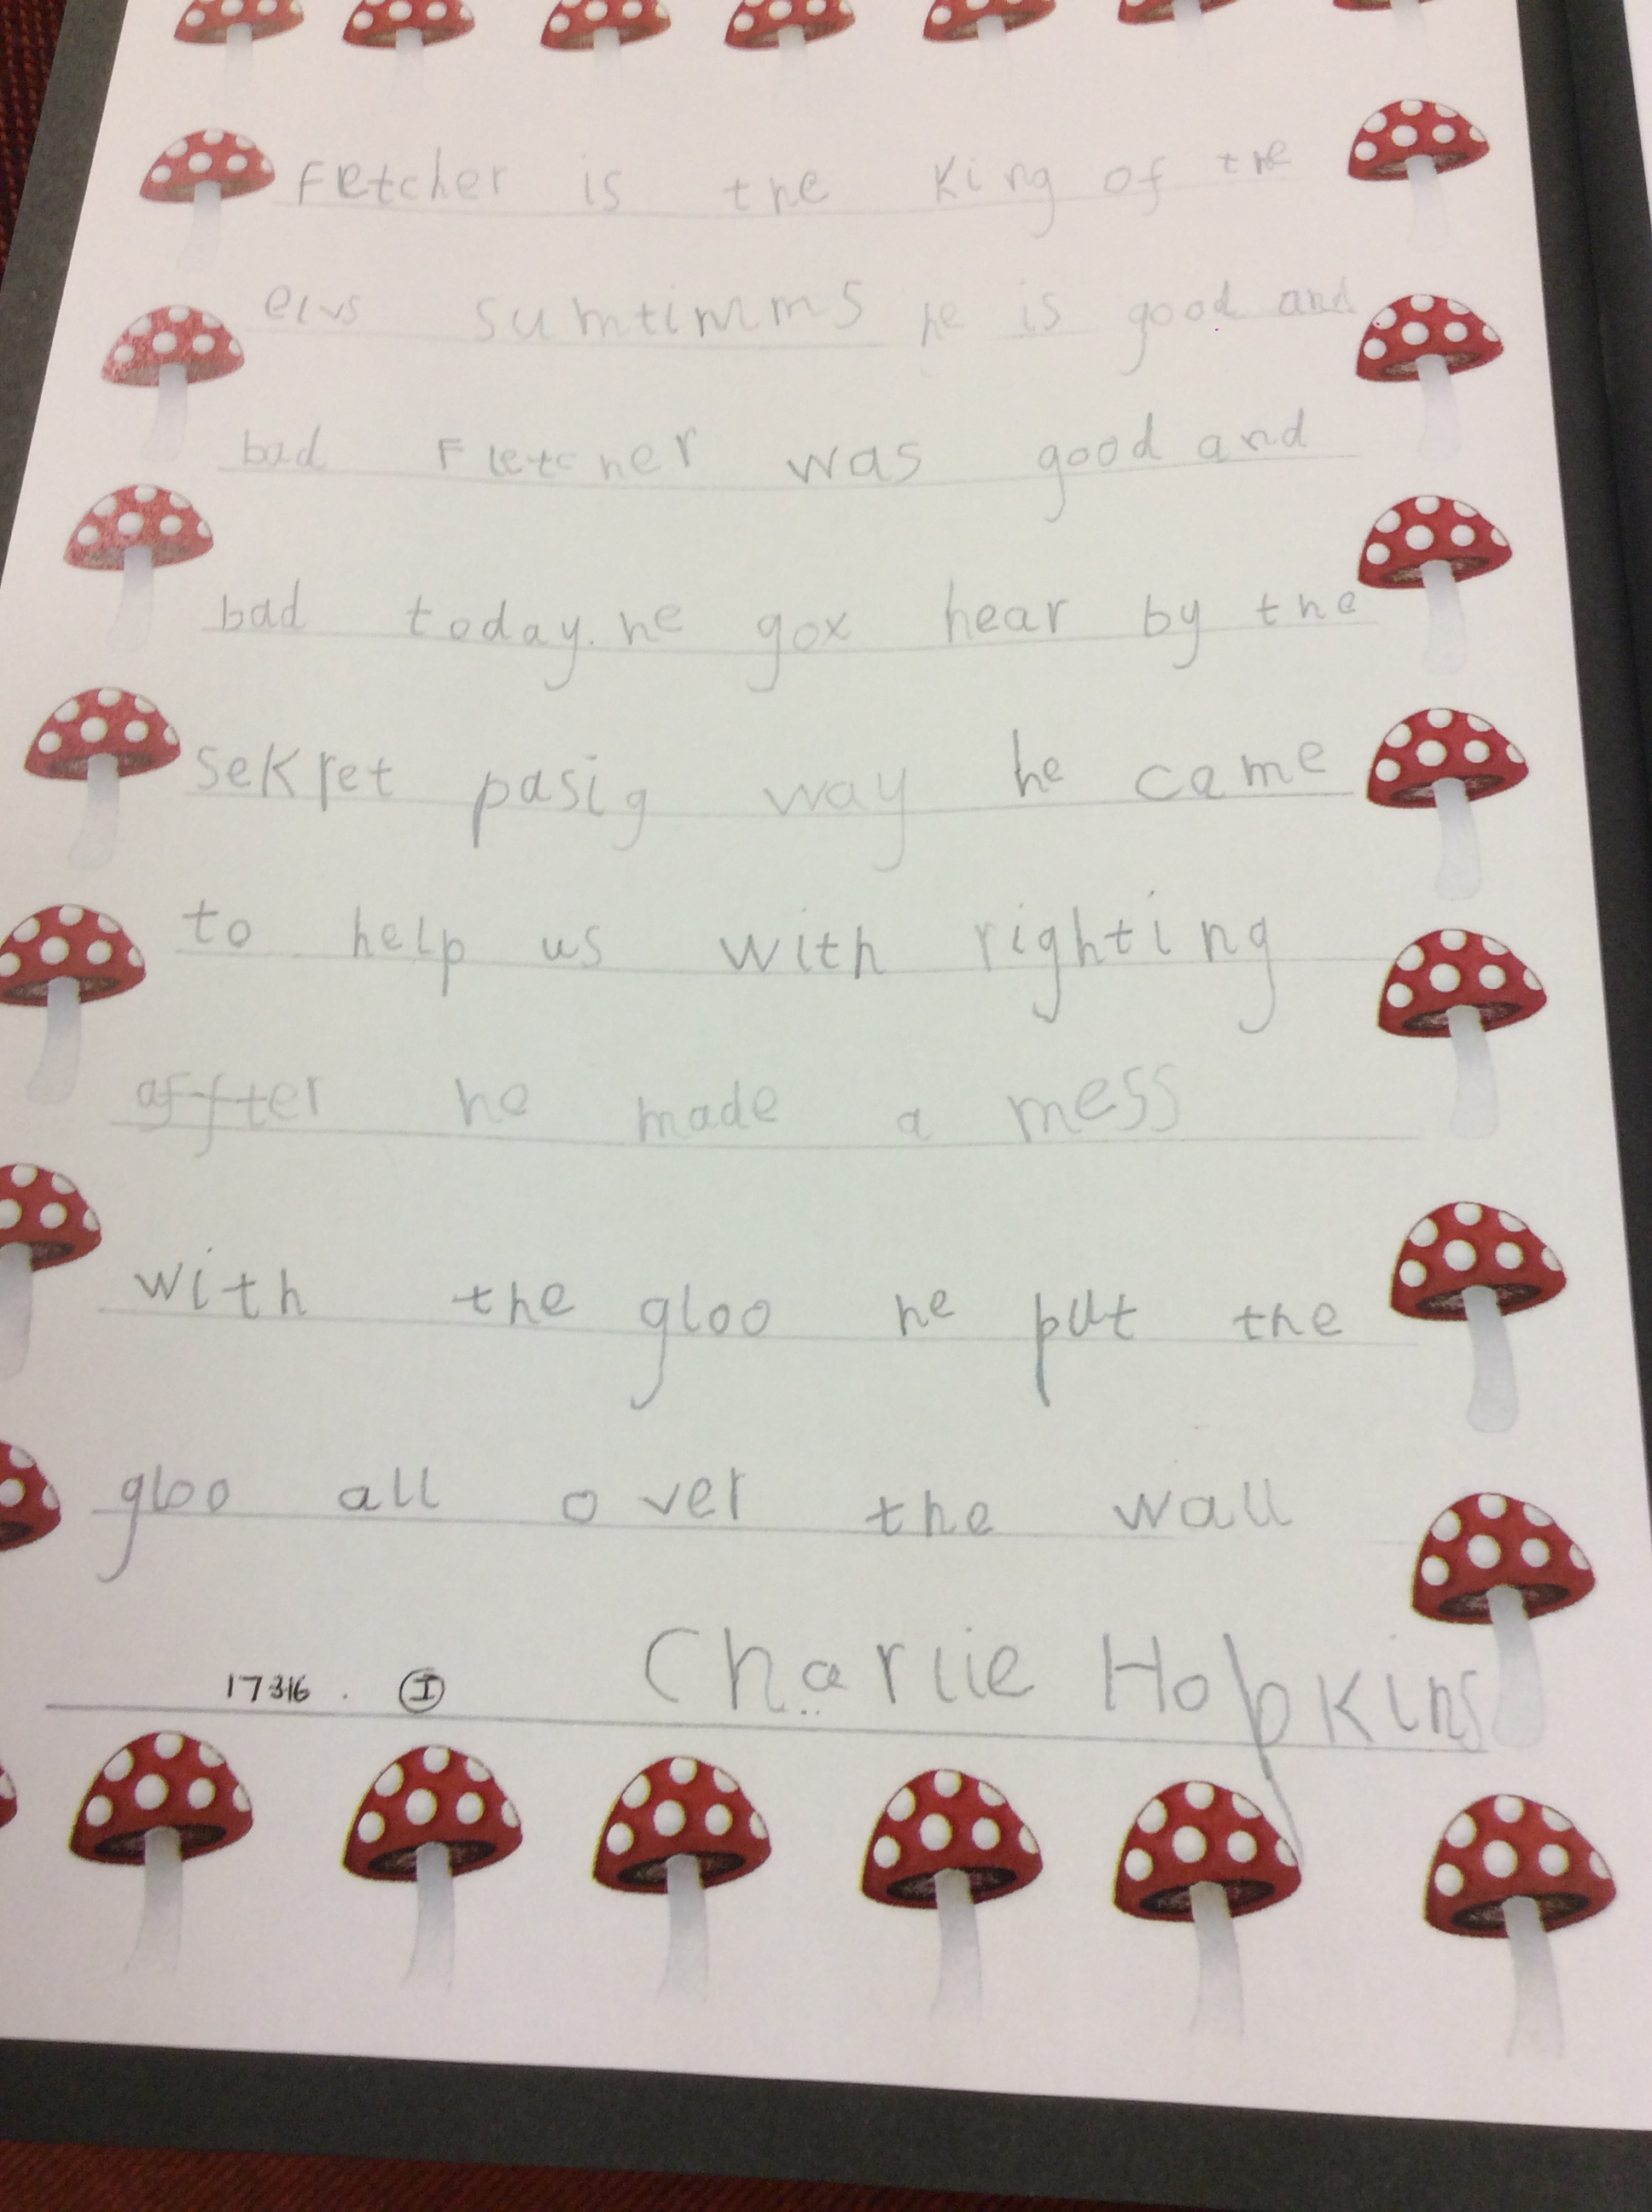 Fletcher is the King of the
elvs sumtimms he is good and
bad Fletcher was good and
bad today. he gox hear by the
seKret pasig way he came
to help us with righting
affter he made a mess
with the gloo he put the
gloo all over the wall
17316. I Charlie Hopkins